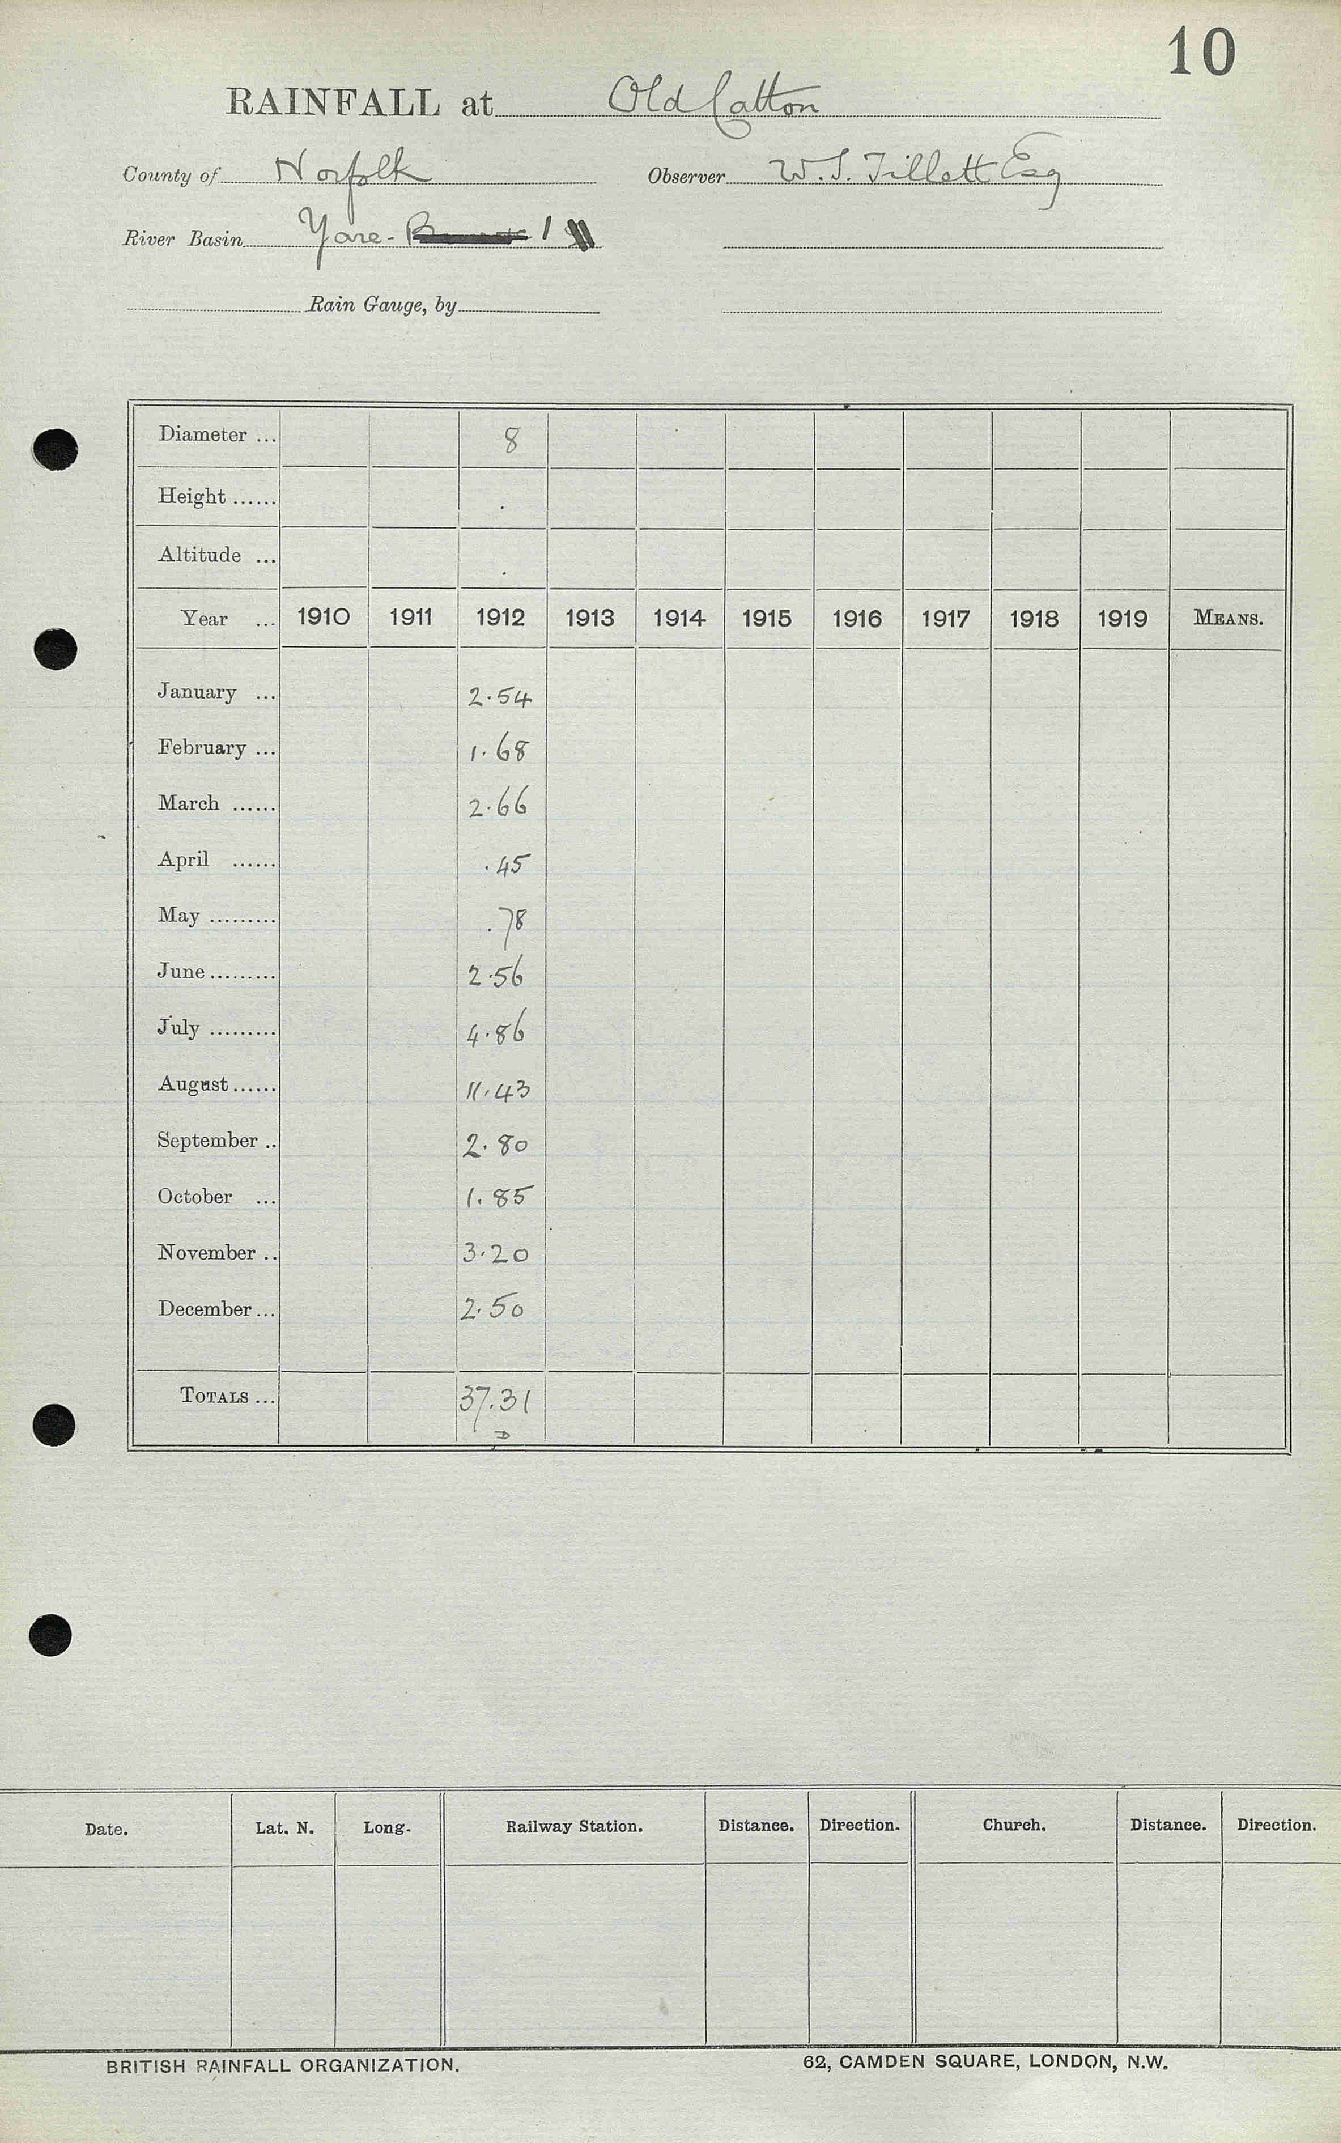 10
RAINFALL at Old Catton
County of Norfolk Observer W. S. Tillett Esq
River Basin Yare - 1
Rain Gauge, by
Diameter ... 8
Height ......
Altitude ...
Year ... 1910 1911 1912 1913 1914 1915 1916 1917 1918 1919 MEANS.
January ... 2.54
February ... 1.68
March ...... 2.66
April ...... .45
May ......... .78
June ......... 2.56
July ......... 4.86
August ...... 11.43
September .. 2.80
October ... 1.85
November .. 3.20
December ... 2.50
TOTALS ... 37.31
D
Date. Lat. N. Long. Railway Station. Distance. Direction. Church. Distance. Direction.
BRITISH RAINFALL ORGANIZATION. 62, CAMDEN SQUARE, LONDON, N.W.